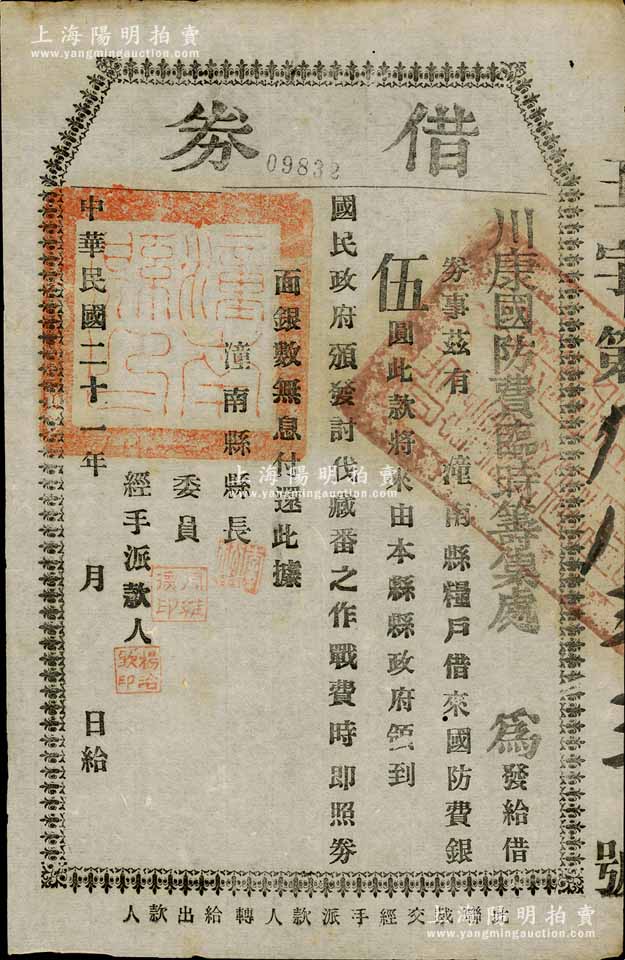 上海陽明拍賣
www.yangmingauction.com
上海陽明拍賣
www.yangmingauction.com
借券
09832
川康國防費臨時籌集處 為發給借
券事茲有 潼南縣糧戶借來國防費銀
伍圓此款將來由本縣縣政府領到
國民政府頒發討伐藏番之作戰費時即照券
面銀數無息付還此據
潼南縣縣長
委員
經手派款人
中華民國二十一年 月 日給
字第 號
此聯截交經手派款人轉給出款人
上海陽明拍賣
www.yangmingauction.com
上海陽明拍賣
www.yangmingauction.com